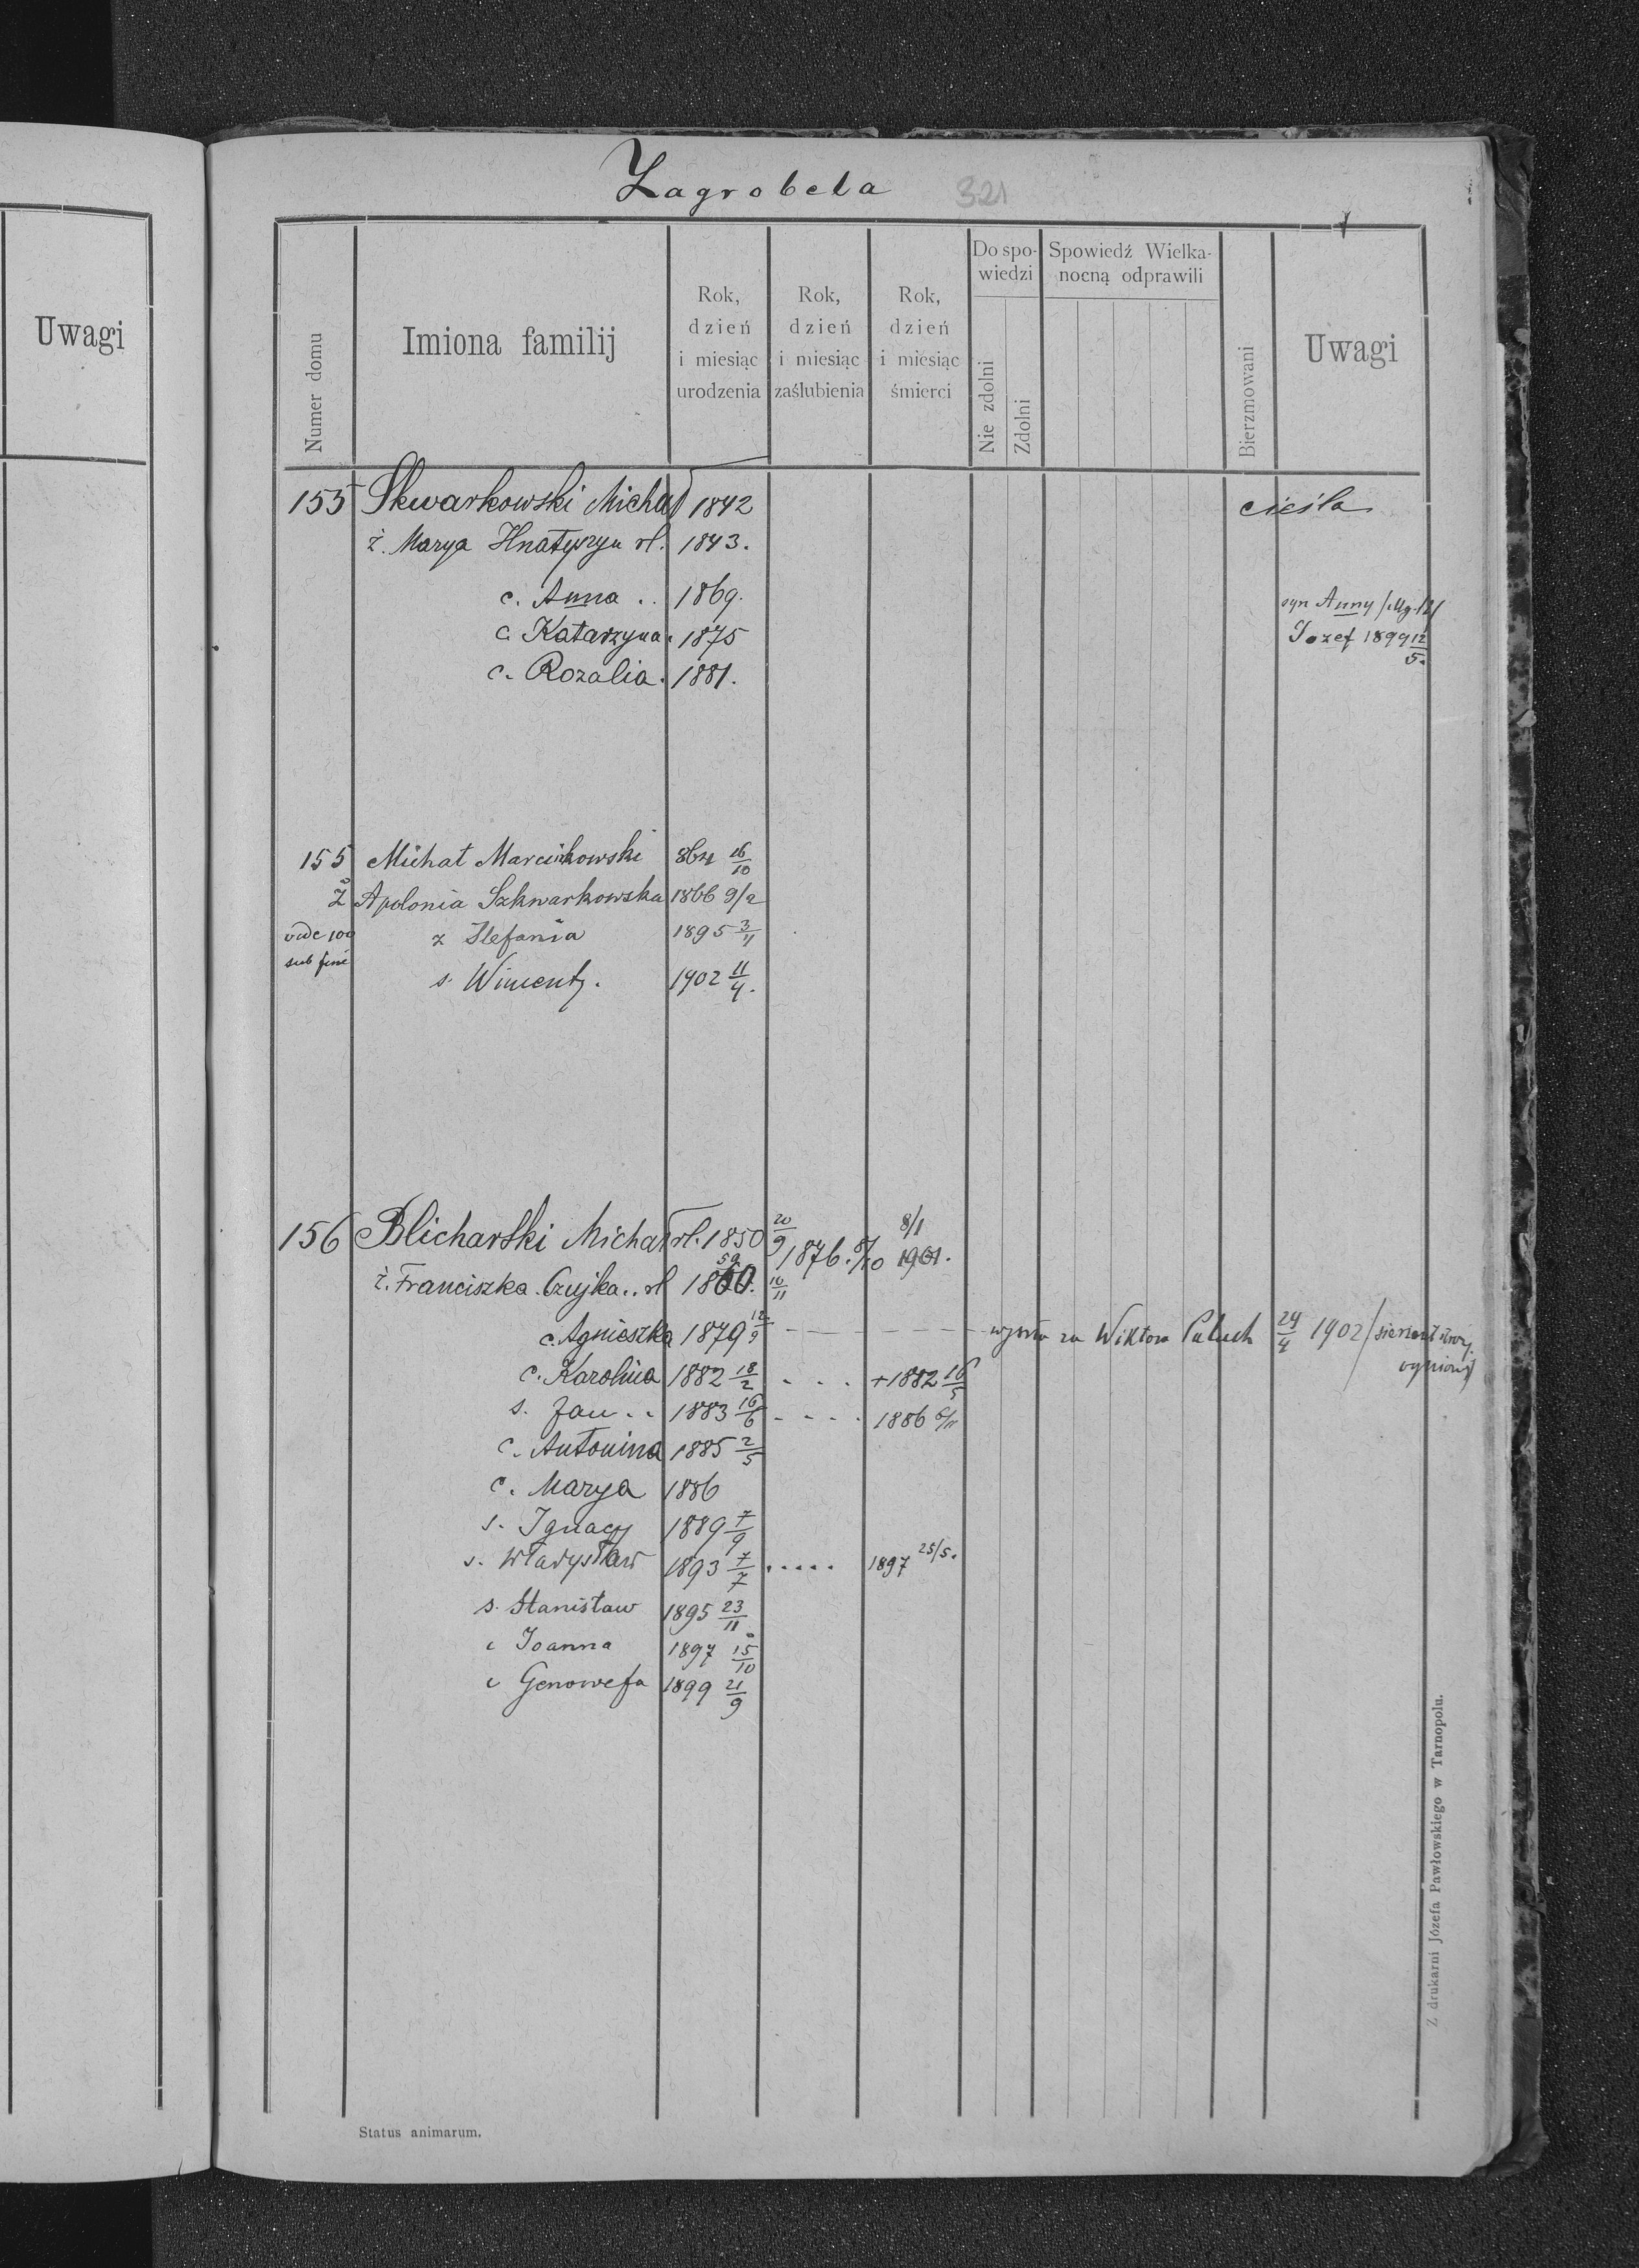 Zagrobela 321
Uwagi
Numer domu
Imiona familij
Rok, dzień i miesiąc urodzenia
Rok, dzień i miesiąc zaślubienia
Rok, dzień i miesiąc śmierci
Do spowiedzi
Nie zdolni
Zdolni
Spowiedź Wielkanocną odprawili
Bierzmowani
Uwagi
155 Skwarkowski Michał 1842 cieśla
ż. Marya Hnatyszyn rl. 1843.
c. Anna .. 1869. syn Anny
c. Katarzyna. 1875 Jozef 1899 12/5.
c. Rozalia. 1881.
155 Michał Marcinkowski 864 26/10
Ż Apolonia Szkwarkowska 1866 9/2
vide 100 z Stefania 1895 3/11
sub fine
s. Wincenty. 1902 11/4.
156 Blicharski Michał rl. 1850 20/9 1876. 8/10 8/1 1901.
ż. Franciszka Czujka.. rl 1860. 59 16/11
c. Agnieszka 1879 12/9 wyszła za Wiktora Paluch 24/4 1902
c. Karolina 1882 18/2 . . . +1882 16/5
s. Jan .. 1883 16/6 . . . . 1886 6/11
c. Antonina 1885 2/5
c. Marya 1886
s. Ignacy 1889 7/9
s. Władysław 1893 7/7 ..... 1897 25/5.
s. Stanisław 1895 23/11
c Joanna 1897 15/10
c Genowefa 1899 21/9
Status animarum.
Z drukarni Józefa Pawłowskiego w Tarnopolu.